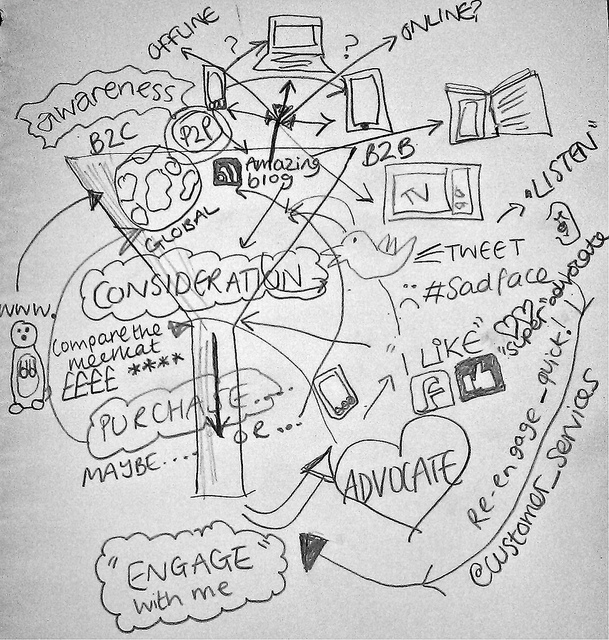 OFFLINE
?
?
ONLINE?
awareness
B2C
P2P
B2B
Amazing
blog
TV
GLOBAL
"LISTEN"
TWEET
CONSIDERATION
#Sadface
www.
Compare the
meerkat
££££ ****
"LIKE"
"super" advocate
f
PURCHASE....
OR...
MAYBE....
ADVOCATE
Re-engage_quick!
@customer_services
"ENGAGE"
with me